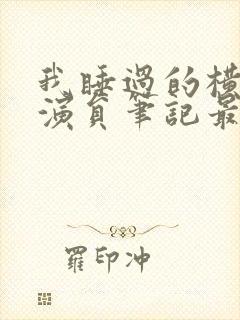 我睡過的橫
演員筆記最
羅印沖